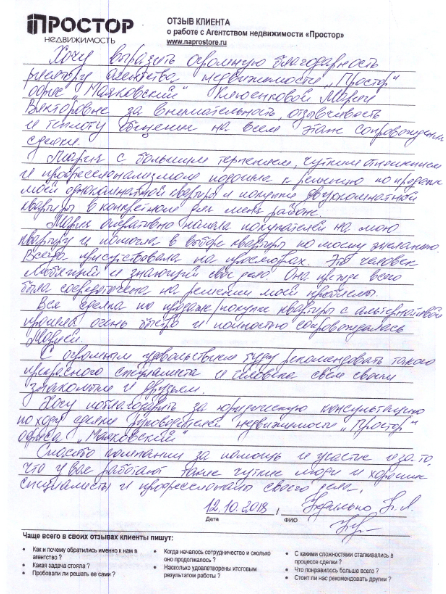 ПРОСТОР
НЕДВИЖИМОСТЬ
ОТЗЫВ КЛИЕНТА
о работе с Агентством недвижимости «Простор»
www.naprostore.ru
Хочу выразить огромную благодарность
риелтору агентства недвижимости "Простор"
офис "Маяковский" Марии
Викторовне за внимательность, отзывчивость
и теплоту общения на всем этапе сопровождения
сделки.
Мария с большим терпением, чутким отношением
и профессионализмом подошла к решению по продаже
моей однокомнатной квартиры и покупке двухкомнатной
квартиры в конкретном для меня районе.
Мария оперативно нашла покупателей на мою
квартиру и помогла в выборе квартиры по моему желанию.
Всегда присутствовала на просмотрах. Это человек
и знающий свое дело. Она прежде всего
была сосредоточена на решении моей проблемы.
Вся сделка по продаже/покупке квартиры с альтернативой
прошла очень и полностью сопровождалась
Марией.
С огромным удовольствием буду рекомендовать такого
прекрасного специалиста и человека всем своим
знакомым и друзьям.
Хочу поблагодарить за юридическую консультацию
по ходу сделки недвижимости "Простор"
офиса "Маяковский"
Спасибо компании за помощь и участие и за то,
что у вас работают такие чуткие люди и хорошие
специалисты и профессионалы своего дела.
12.10.2018
Дата
ФИО
Чаще всего в своих отзывах клиенты пишут:
• Как и почему обратились именно к нам в агентство ?
• Какая задача стояла ?
• Пробовали ли решать ее сами ?
• Когда началось сотрудничество и сколько оно продолжалось ?
• Насколько удовлетворены итоговым результатом работы ?
• С какими сложностями сталкивались в процессе сделки ?
• Что понравилось больше всего ?
• Стоит ли нас рекомендовать другим ?